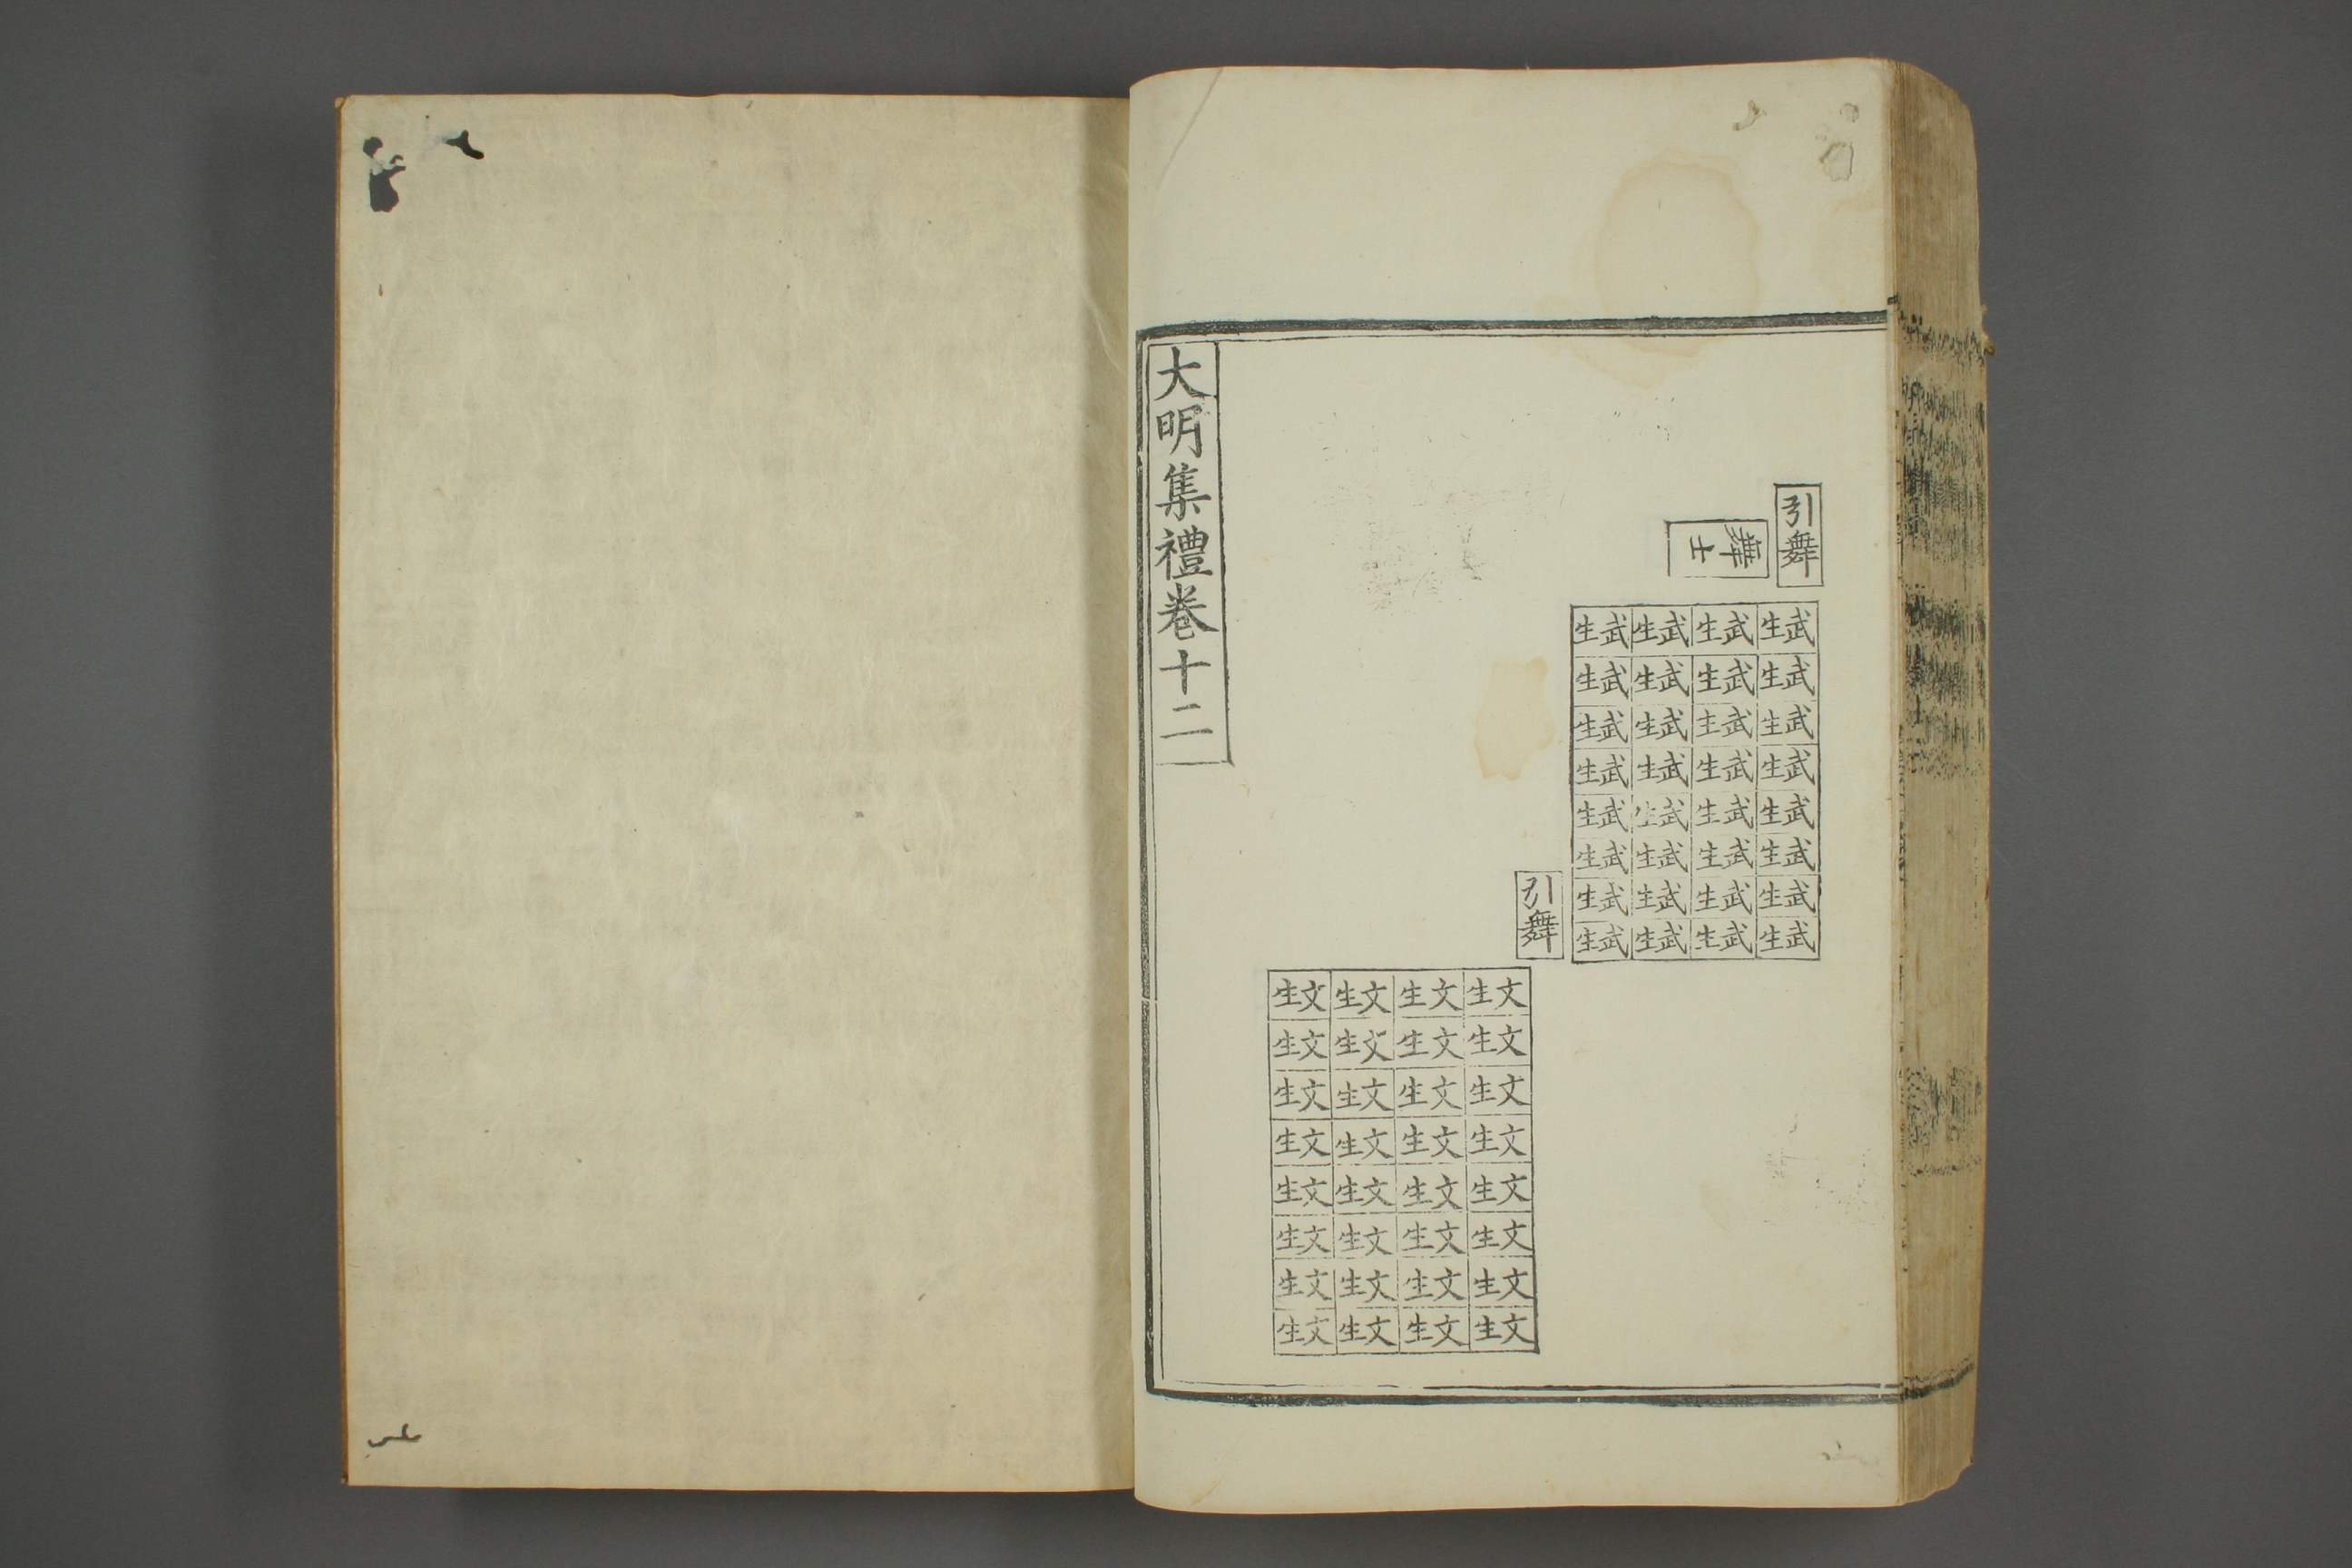 引舞
舞士
武生 武生 武生 武生
武生 武生 武生 武生
武生 武生 武生 武生
武生 武生 武生 武生
武生 武生 武生 武生
武生 武生 武生 武生
武生 武生 武生 武生
武生 武生 武生 武生
引舞
文生 文生 文生 文生
文生 文生 文生 文生
文生 文生 文生 文生
文生 文生 文生 文生
文生 文生 文生 文生
文生 文生 文生 文生
文生 文生 文生 文生
文生 文生 文生 文生
大明集禮卷十二